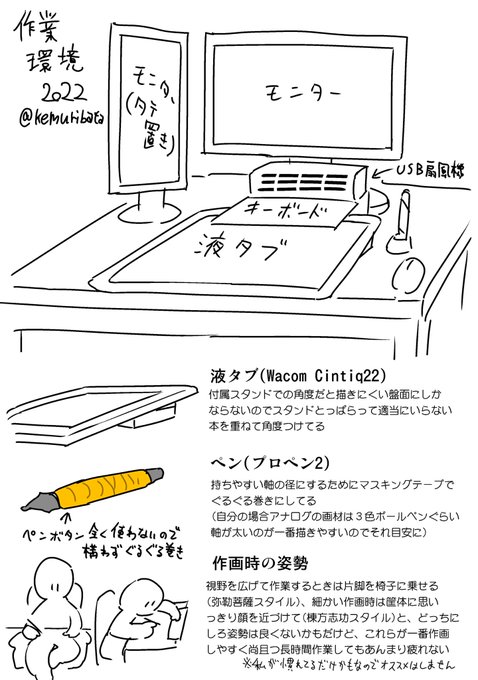 作業
環境
2022
@kemuribata
モニター
(タテ
置き)
モニター
←USB扇風機
キーボード
液タブ
液タブ(Wacom Cintiq22)
付属スタンドでの角度だと描きにくい盤面にしか
ならないのでスタンドとっぱらって適当にいらない
本を重ねて角度つけてる
ペン(プロペン2)
持ちやすい軸の径にするためにマスキングテープで
ぐるぐる巻きにしてる
(自分の場合アナログの画材は３色ボールペンぐらい
軸が太いのが一番描きやすいのでそれ目安に)
ペンボタン全く使わないので
構わずぐるぐる巻き
作画時の姿勢
視野を広げて作業するときは片脚を椅子に乗せる
(弥勒菩薩スタイル)、細かい作画時は筐体に思い
っきり顔を近づけて(棟方志功スタイル)と、どっちに
しろ姿勢は良くないかもだけど、これらが一番作画
しやすく尚且つ長時間作業してもあんまり疲れない
※私が慣れてるだけかもなのでオススメはしません